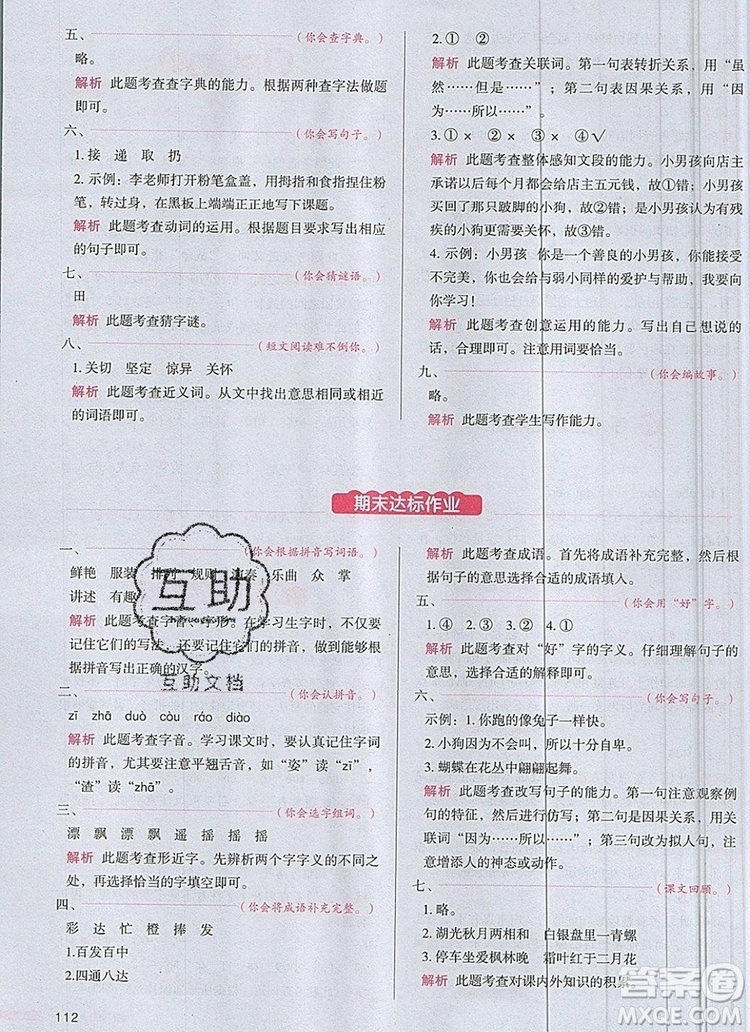 五、（你会查字典。）
略。
解析 此题考查查字典的能力。根据两种查字法做题
即可。
六、（你会写句子。）
1.接 递 取 扔
2.示例：李老师打开粉笔盒盖，用拇指和食指捏住粉
笔，转过身，在黑板上端端正正地写下课题。
解析 此题考查动词的运用。根据题目要求写出相应
的句子即可。
七、（你会猜谜语。）
田
解析 此题考查猜字谜。
八、（短文阅读难不倒你。）
1.关切 坚定 惊异 关怀
解析 此题考查近义词。从文中找出意思相同或相近
的词语即可。
2.① ②
解析 此题考查关联词。第一句表转折关系，用“虽
然……但是……”；第二句表因果关系，用“因
为……所以……”。
3.①× ②√ ③× ④√
解析 此题考查整体感知文段的能力。小男孩向店主
承诺以后每个月都会付给店主五元钱，故①错；小男孩
买回了那只跛脚的小狗，而且他也没有说过他对有残
疾的小狗更加关怀，故③错。
4.示例：小男孩 你是一个善良的小男孩，你能接受
不完美，也能给与弱小同样的爱护与帮助，我要向你
学习！
解析 此题考查创意运用的能力。写出自己想说的
话，合理即可。注意用词要恰当。
九、（你会编故事。）
略。
解析 此题考查学生写作能力。
期末达标作业
一、（你会根据拼音写词语。）
鲜艳 服装 规则 奏 乐曲 众 掌
讲述 有趣
解析 此题考查字音、字形。在学习生字时，不仅要
记住它们的写法，还要记住它们的读音，这样才能根
据拼音写出正确的汉字。
二、（你会认拼音。）
zī zhā duò còu ráo diào
解析 此题考查字音。学习课文时，要认真识记字词
的拼音，尤其要注意平翘舌音，如“姿”读“zī”，
“渣”读“zhā”。
三、（你会选字组词。）
漂 飘 漂 飘 遥 摇 摇 摇
解析 此题考查形近字。先辨析两个字字义的不同之
处，再选择恰当的字填空即可。
四、（你会将成语补充完整。）
彩 达 忙 橙 捧 发
1.百发百中
2.四通八达
解析 此题考查成语。首先将成语补充完整，然后根据
句子的意思选择合适的成语填入。
五、（你会用“好”字。）
1.④ 2.② 3.① 4.①
解析 此题考查对“好”字的字义。仔细理解句子的意
思，选择合适的解释即可。
六、（你会写句子。）
示例：1.你跑的像兔子一样快。
2.小狗因为不会叫，所以十分伤心。
3.蝴蝶在花丛中翩翩起舞。
解析 此题考查改写句子的能力。第一句注意观察例
句的特征，然后进行仿写；第二句是因果关系，用关
联词“因为……所以……”；第三句改成拟人句，应
注意增添人的神态或动作。
七、（课文回顾。）
1.略。
2.湖光秋月两相和 白银盘里一青螺
3.停车坐爱枫林晚 霜叶红于二月花
解析 此题考查对课内外知识的积累。
112
互助
互助文档
答案圈
MXQE.COM